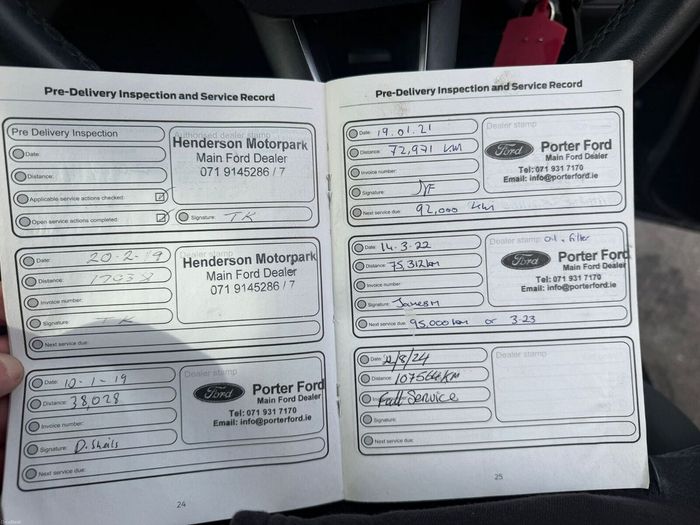 Pre-Delivery Inspection and Service Record
Pre Delivery Inspection
Authorised dealer stamp
Date:
Distance:
Applicable service actions checked:
Open service actions completed:
Henderson Motorpark
Main Ford Dealer
071 9145286 / 7
Signature: TK
Date: 20-2-19
Distance: 17038
Invoice number:
Signature: TK
Next service due:
Dealer stamp
Henderson Motorpark
Main Ford Dealer
071 9145286 / 7
Date: 10-1-19
Distance: 38,028
Invoice number:
Signature: D. Sheils
Next service due:
Dealer stamp
Ford
Porter Ford
Main Ford Dealer
Tel: 071 931 7170
Email: info@porterford.ie
24
Pre-Delivery Inspection and Service Record
Date: 19.01.21
Distance: 72,971 KM
Invoice number:
Signature:
Next service due: 92,000 km
Dealer stamp
Ford
Porter Ford
Main Ford Dealer
Tel: 071 931 7170
Email: info@porterford.ie
Date: 14-3-22
Distance: 75,312 km
Invoice number:
Signature: James M
Next service due: 95,000 km or 3-23
Dealer stamp Oil + Filter
Ford
Porter Ford
Main Ford Dealer
Tel: 071 931 7170
Email: info@porterford.ie
Date: /8/24
Distance: 107564 KM
Full Service
Signature:
Next service due:
Dealer stamp
25